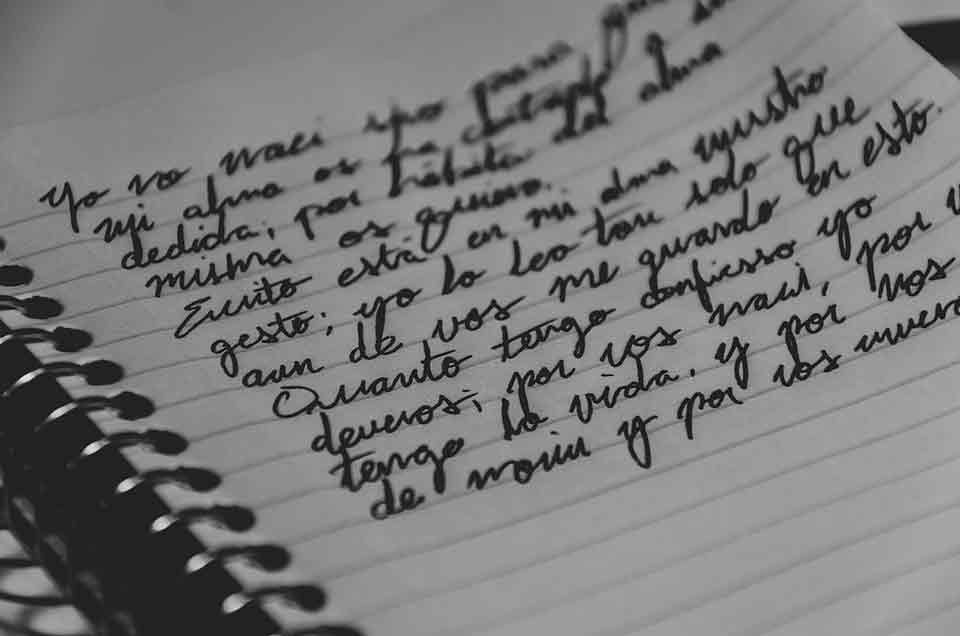 Yo no nací yo para
mi alma os ha cortado
dedida; por hábito del alma
misma os quiero.
Escrito está en mi alma vuestro
gesto; yo lo leo tan solo que
aun de vos me guardo en esto.
Quanto tengo confiesso yo
deveros; por vos nací, por
tengo la vida, y por vos
de morir y por vos muero